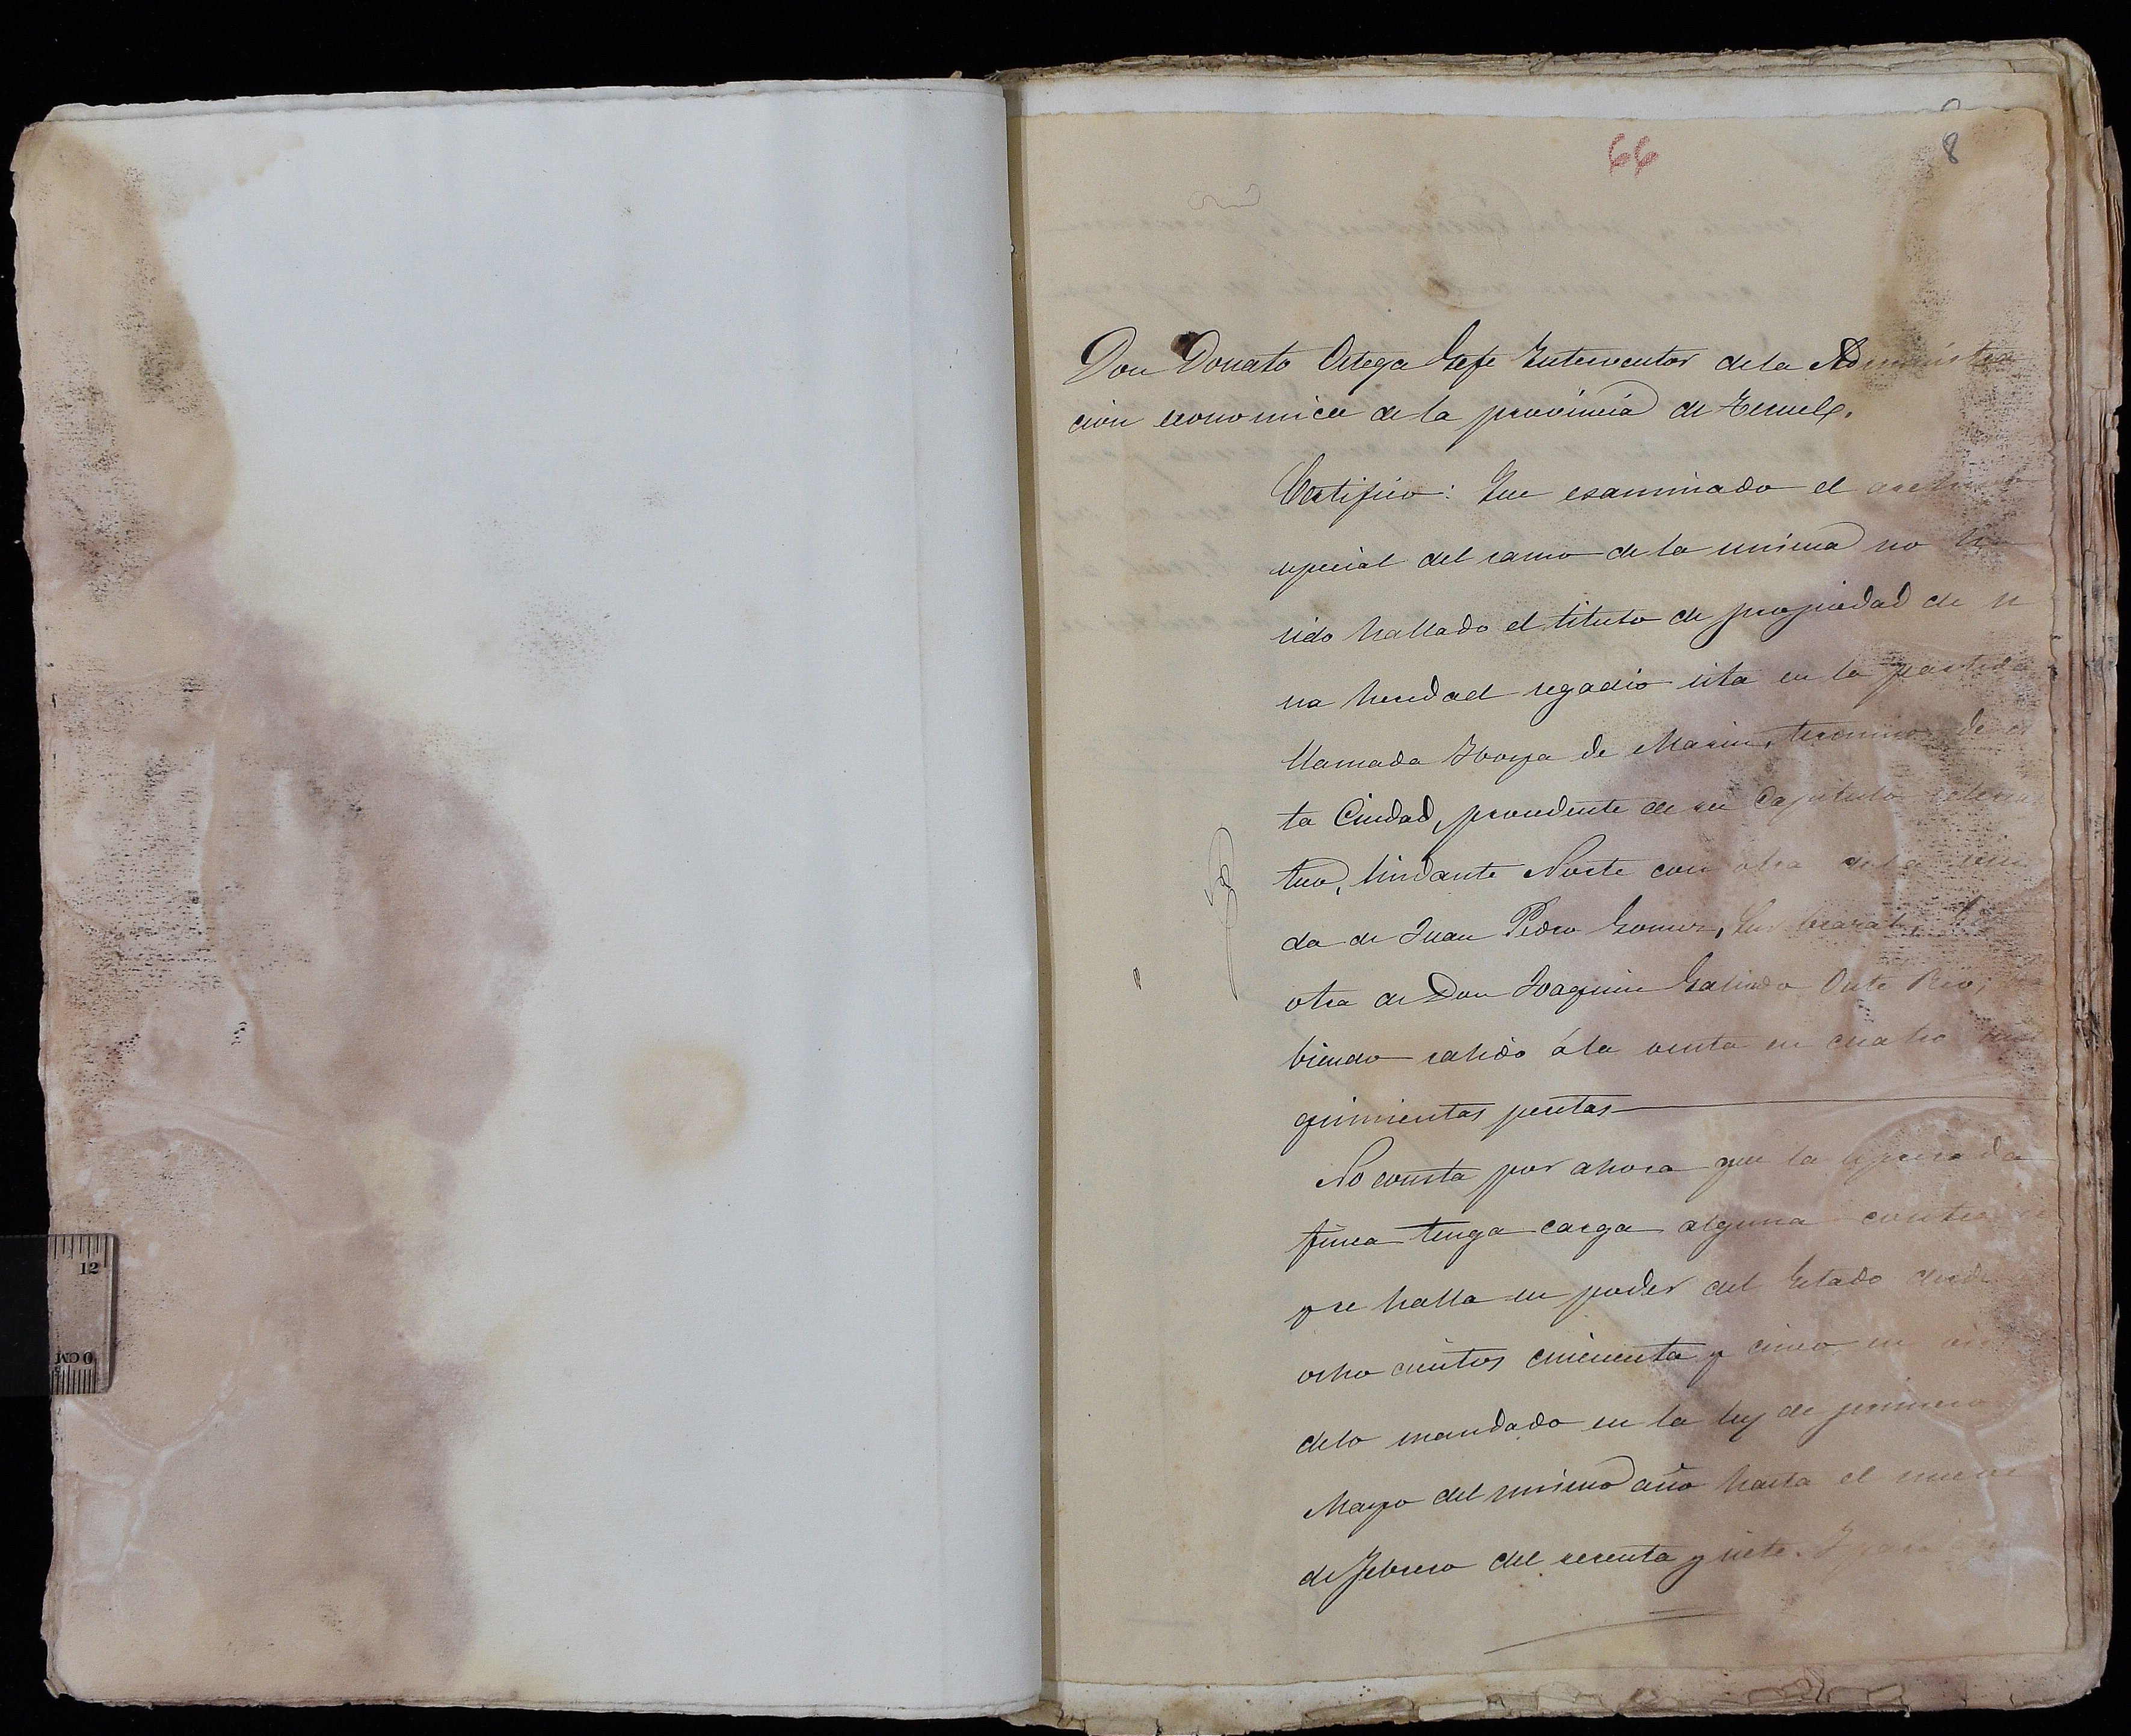 66
8
Don Donato Ortega Gefe Interventor de la Administra
cion economica de la provincia de Teruel.
Certifico: Que esaminado el
especial del ramo de la misma no ha
sido hallado el titulo de propiedad de u
na heredad regadio sita en la partida
llamada Hoya de Marin, termino de es
ta Ciudad, procedente de su Capitulo eclesias
tico, lindante Norte con otra de la viu
da de Juan Pedro Gomez, Sur
otra de Don Joaquin Galindo Oeste Rio, ha
biendo salido á la venta en cuatro mil
quinientas pesetas
No consta por ahora que la espresada
finca tenga carga alguna contra si
y se halla en poder del Estado desde
ocho cientos cincuenta y cinco en
de lo mandado en la ley de primero
Mayo del mismo año hasta el nueve
de Febrero del sesenta y siete. Y para